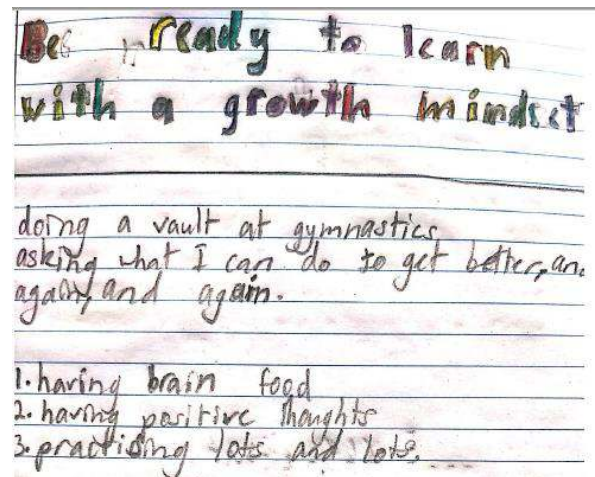 Be ready to learn
with a growth mindset
doing a vault at gymnastics
asking what I can do to get better, an
again, and again.
1. having brain food
2. having positive thoughts
3. practising lots and lots.